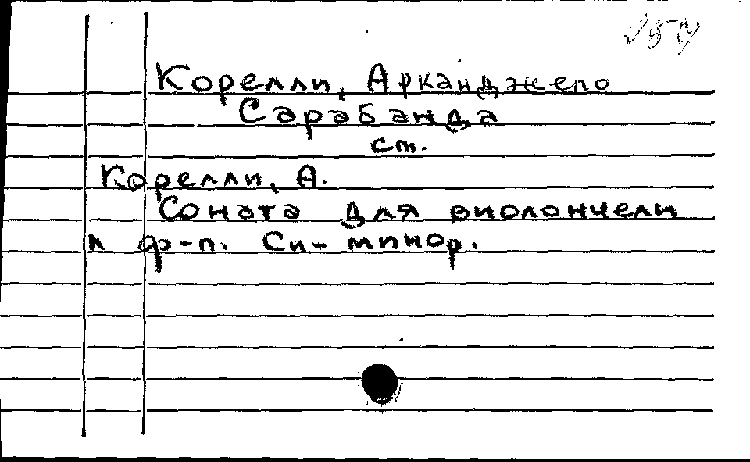 Корелли, Арканджело
Сарабанда
см.
Корелли, А.
Соната для виолончели
и ф-п. Си-минор.